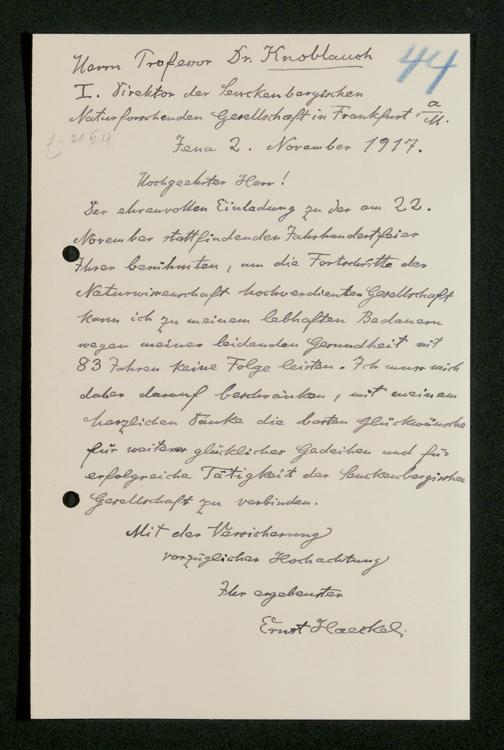 Herrn Professor Dr. Knoblauch
44
I. Direktor der Senckenbergischen
Naturforschenden Gesellschaft in Frankfurt a/M.
20.XI.17
Jena 2. November 1917.
Hochgeehrter Herr!
Der ehrenvollen Einladung zu der am 22.
November stattfindenden Jahrhundertfeier
Ihrer berühmten, um die Fortschritte der
Naturwissenschaft hochverdienten Gesellschaft
kann ich zu meinem lebhaften Bedauern
wegen meiner leidenden Gesundheit mit
83 Jahren keine Folge leisten. Ich muss mich
daher darauf beschränken, mit meinem
herzlichen Danke die besten Glückwünsche
für weiteres glückliches Gedeihen und für
erfolgreiche Tätigkeit der Senckenbergischen
Gesellschaft zu verbinden.
Mit der Versicherung
vorzüglicher Hochachtung
Ihr ergebenster
Ernst Haeckel.